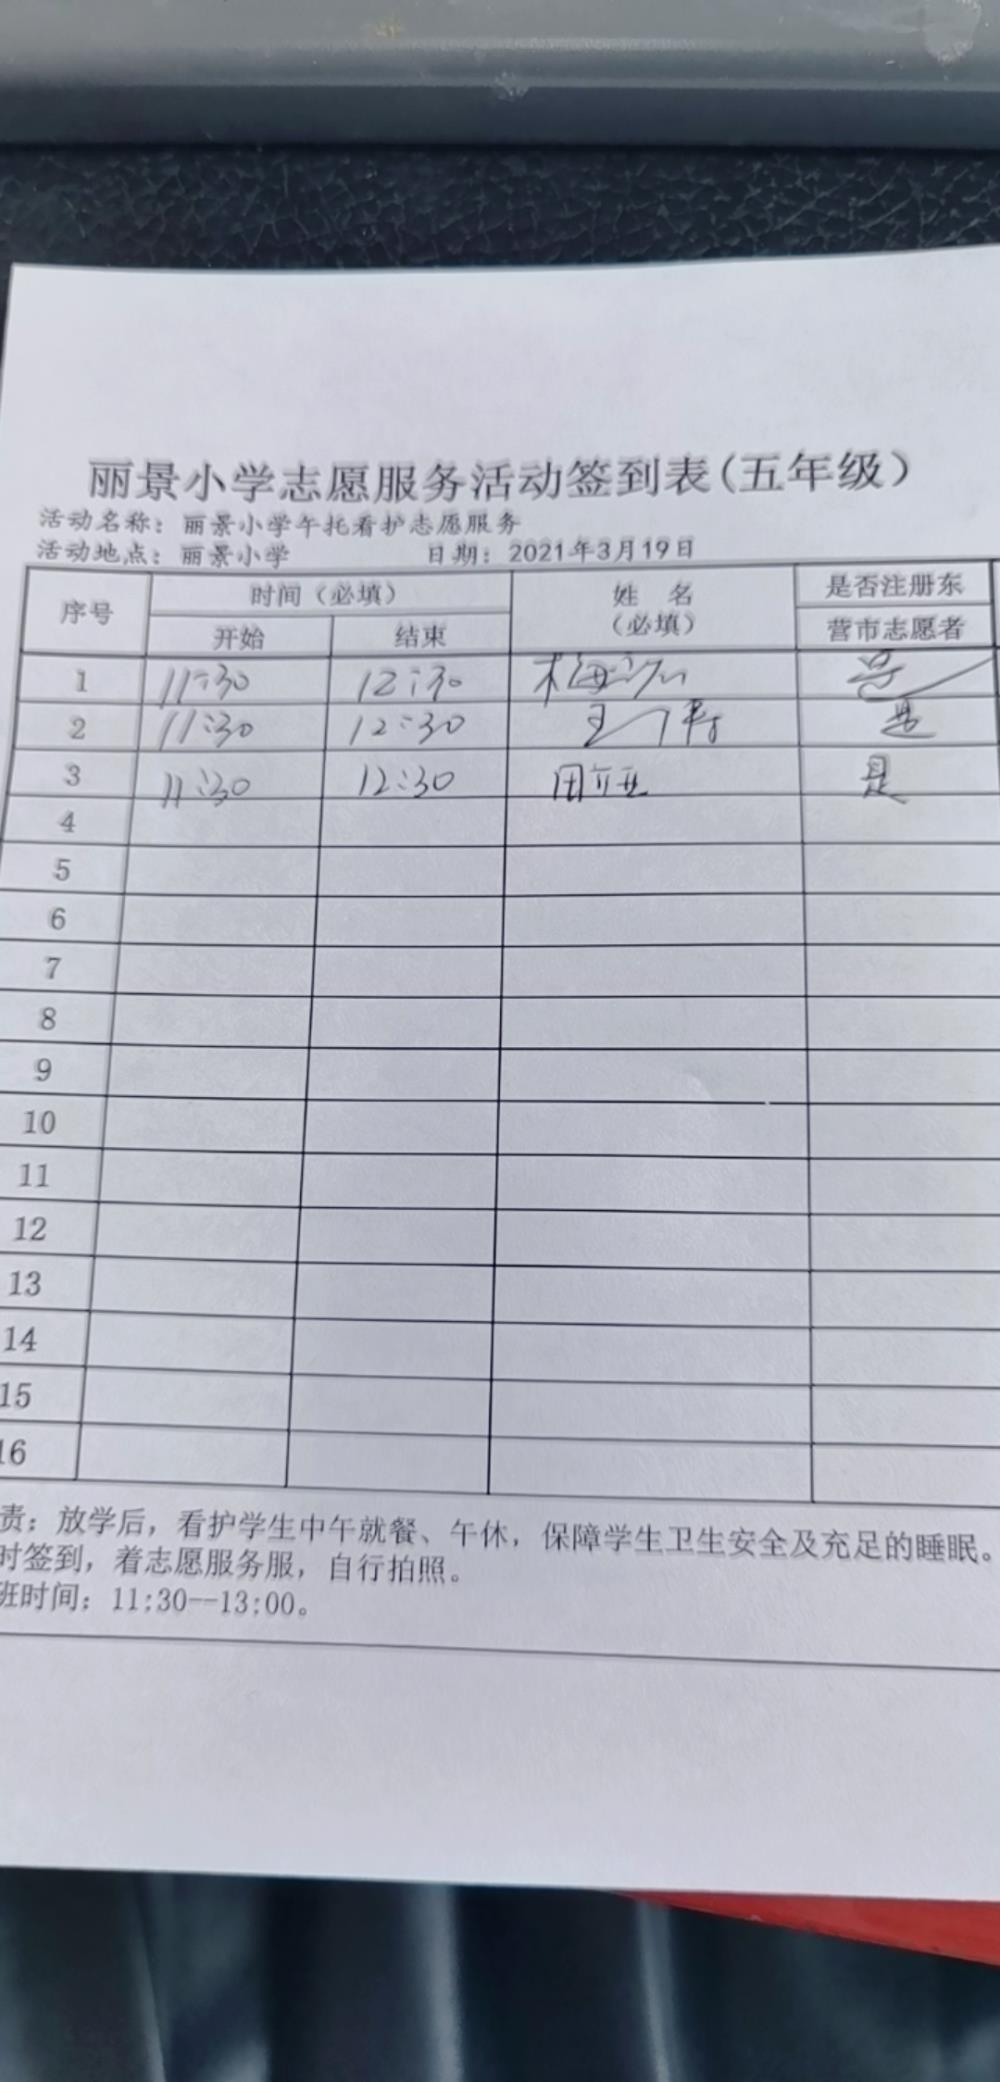 丽景小学志愿服务活动签到表(五年级)
活动名称：丽景小学午托看护志愿服务
活动地点：丽景小学 日期：2021年3月19日
序号 时间（必填） 姓 名（必填） 是否注册东营市志愿者
开始 结束
1 11:30 12:30 是
2 11:30 12:30 王 是
3 11:30 12:30 是
4
5
6
7
8
9
10
11
12
13
14
15
16
责：放学后，看护学生中午就餐、午休，保障学生卫生安全及充足的睡眠。
时签到，着志愿服务服，自行拍照。
班时间：11:30--13:00。